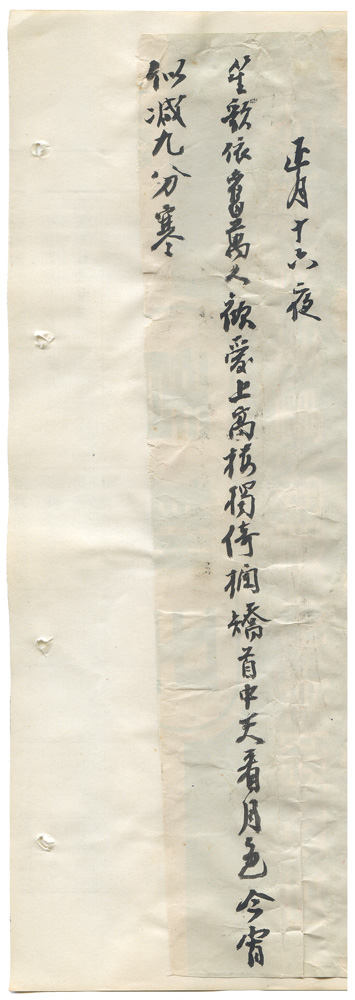 正月十六夜
笙歌依舊萬人歡愛上高樓獨倚欄矯首中天看月色今宵
似減九分寒